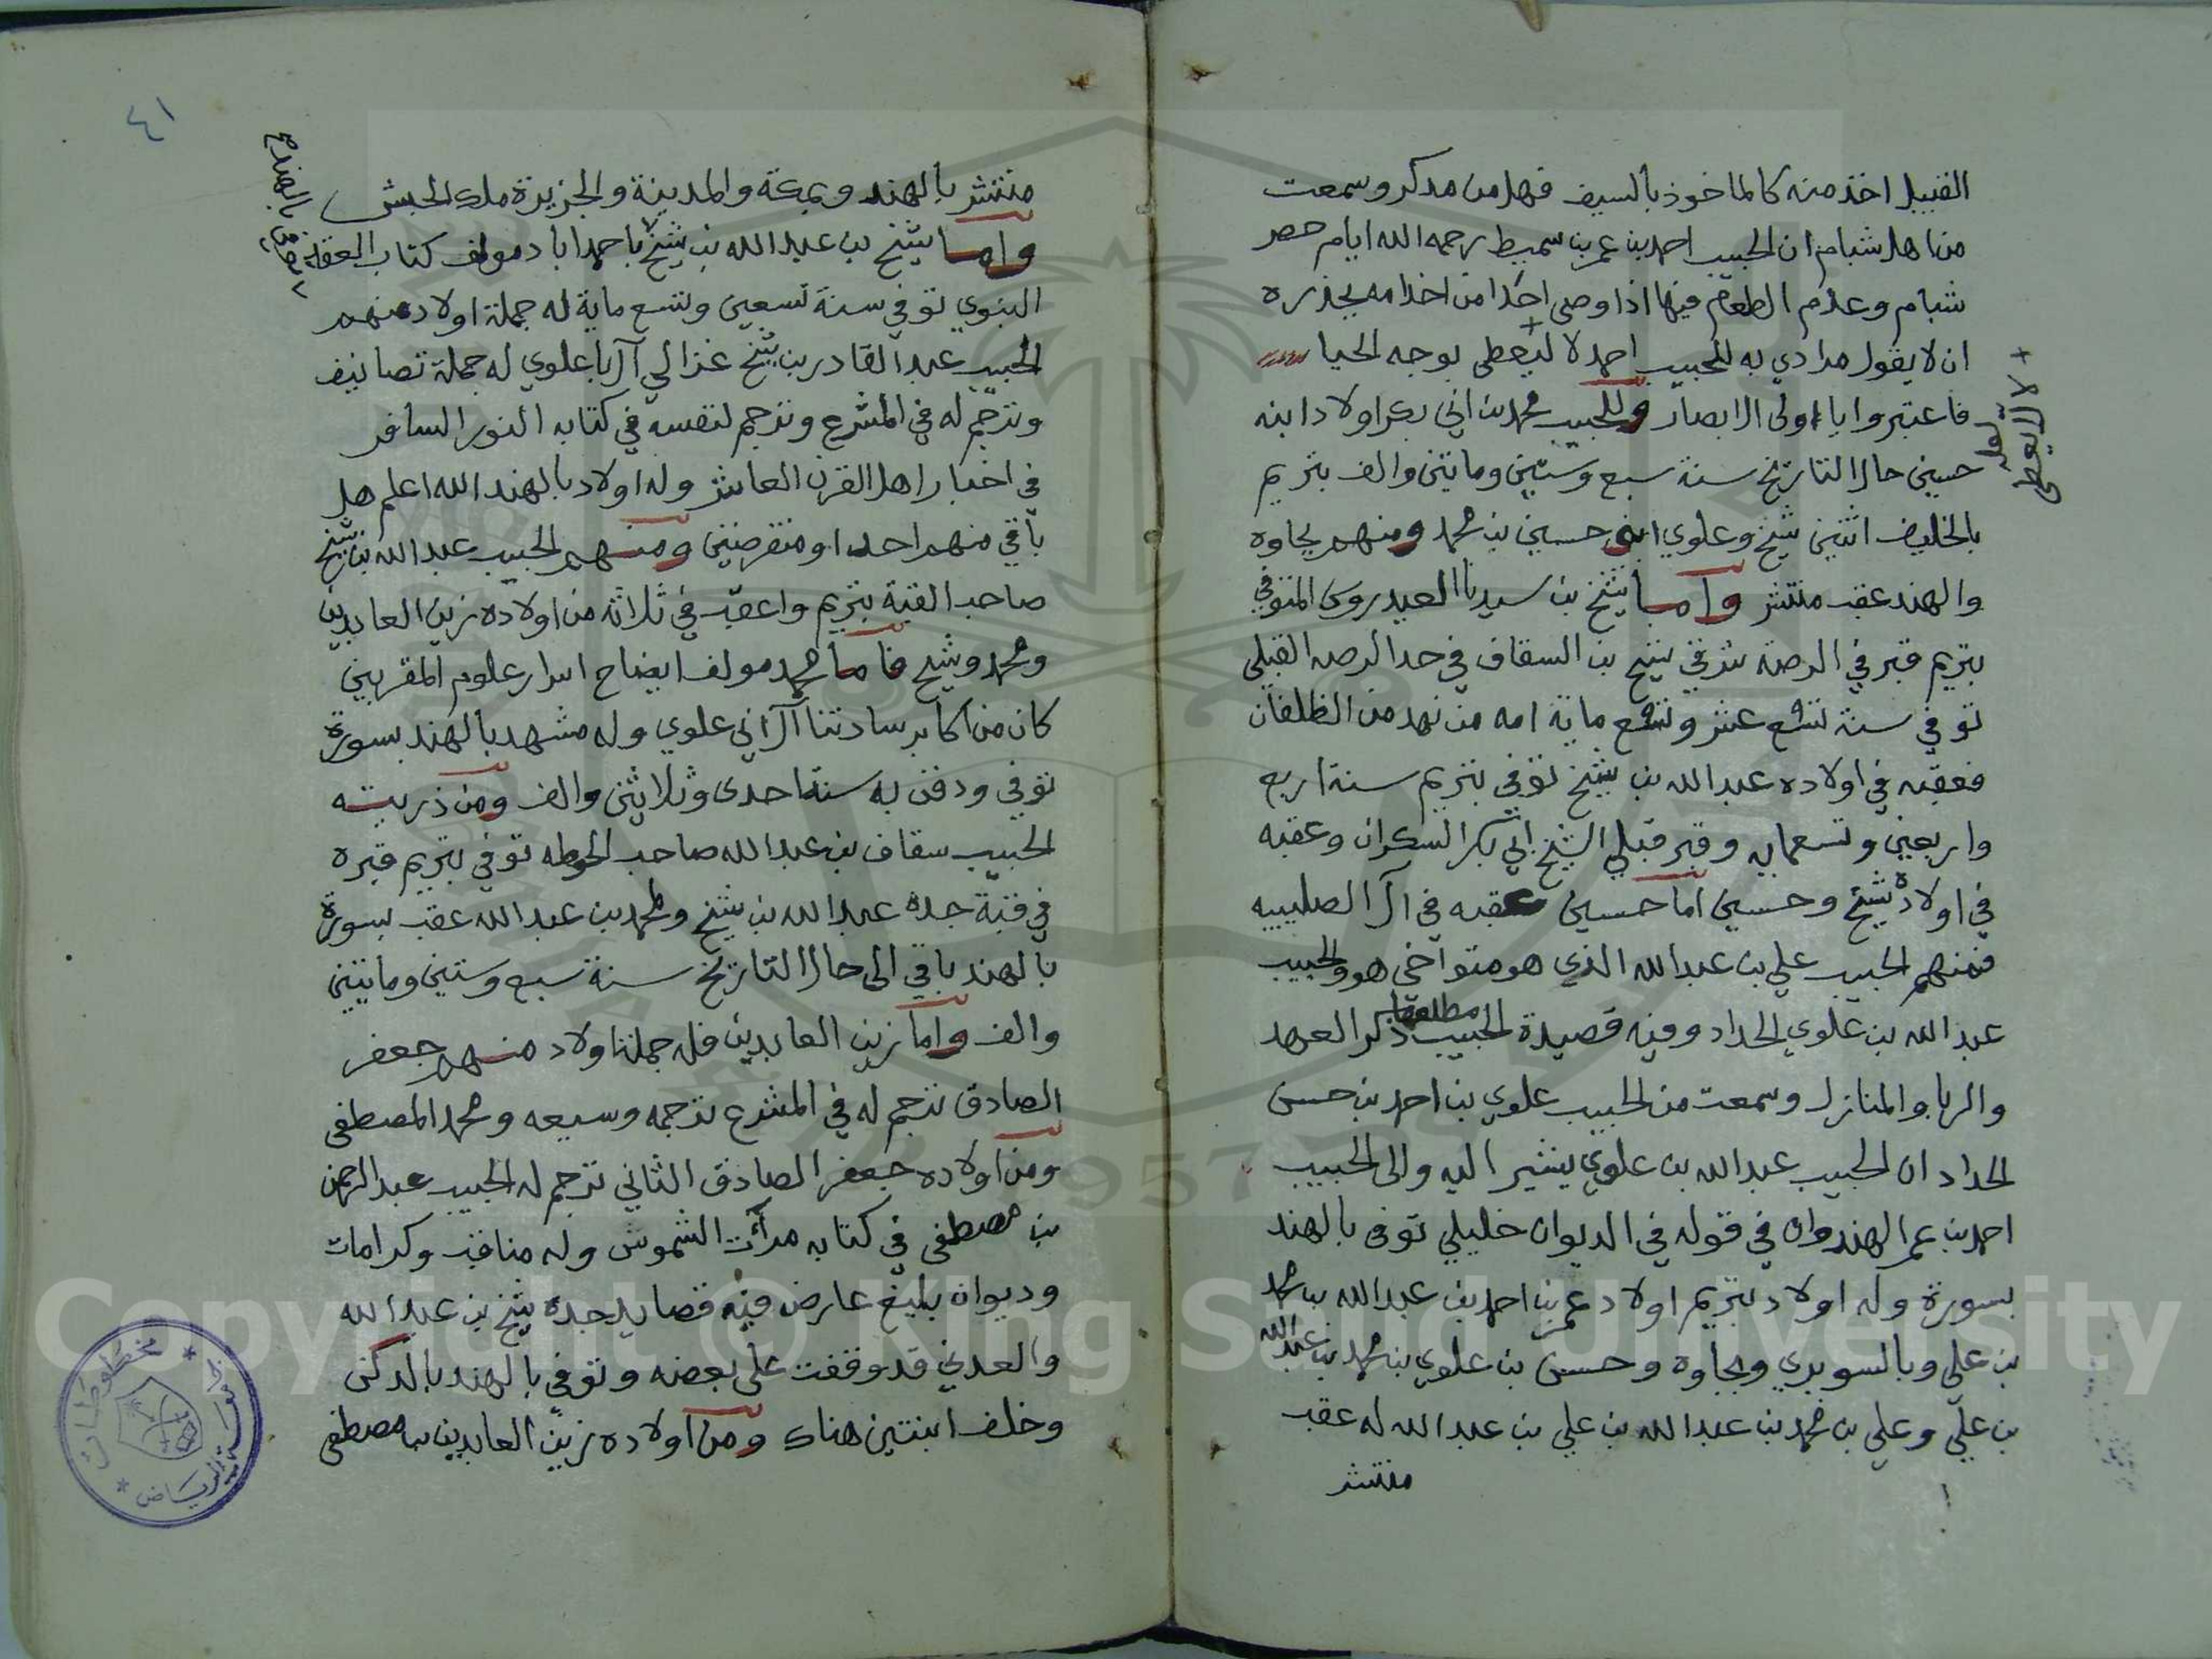 القبيل اخذ منه كالماخوذ بالسيف فهل من مدكر وسمعت
من اهل شبام ان الحبيب احمد بن عمر بن سميط رحمه الله ايام حصر
شبام وعدم الطعام فيها اذا وصى احدا من اخدامه يحذره
ان لا يقول مرادي به للحبيب احمد لا ليعطى بوجه الحيا
فاعتبروا يا اولى الابصار وللحبيب محمد بن ابي بكر اولاد ابنه
حسين حال التاريخ سنة سبع وستين ومايتين والف بتريم
بالخليف اثنين شيخ وعلوي ابني حسين بن محمد ومنهم بجاوه
والهند عقب منتشر واما شيخ بن سيدنا العيدروس المتوفي
بتريم قبر في الرصه شرقي شيخ بن السقاف في حد الرصه القبلي
توفي سنة تسع عشر وتسع ماية امه من نهد من الظلفان
فعقبه في اولاده عبد الله بن شيخ توفي بتريم سنة اربع
واربعين وتسعمايه وقبر قبلي الشيخ ابي بكر السكران وعقبه
في اولاده شيخ وحسين اما حسين عقبه في آل الصليبيه
فمنهم الحبيب علي بن عبد الله الذي هو متواخي هو والحبيب
عبد الله بن علوي الحداد وفيه قصيدة الحبيب مطلعها ذكر العهد
والربا والمنازل وسمعت من الحبيب علوي بن احمد بن حسن
الحداد ان الحبيب عبد الله بن علوي يشير اليه والى الحبيب
احمد بن عمر الهندوان في قوله في الديوان خليلي توفى بالهند
بسورة وله اولاد بتريم اولاد عمر بن احمد بن عبد الله بن محمد
بن علي وبالسويري وبجاوه وحسن بن علوي بن محمد بن عبد الله
بن علي وعلي بن محمد بن عبد الله بن علي بن عبد الله له عقب
منتشر
+ لا ليعطى
لعله
٤١
منتشر بالهند وبمكة والمدينة والجزيرة ملك الحبش
واما شيخ بن عبد الله بن شيخ باحمد اباد مولف كتاب العقد
النبوي توفي سنة تسعين وتسع ماية له جملة اولاد منهم
الحبيب عبد القادر بن شيخ غزالي آل باعلوي له جملة تصانيف
وترجم له في المشرع وترجم لنفسه في كتابه النور السافر
في اخبار اهل القرن العاشر وله اولاد بالهند الله اعلم هل
باقي منهم احد او منقرضين ومنهم الحبيب عبد الله بن شيخ
صاحب القبة بتريم واعقب في ثلاثه من اولاده زين العابدين
ومحمد وشيخ فاما محمد مولف ايضاح اسرار علوم المقربين
كان من اكابر سادتنا آل ابي علوي وله مشهد بالهند بسورة
توفي ودفن به سنة احدى وثلاثين والف ومن ذريته
الحبيب سقاف بن عبد الله صاحب الحوطه توفي بتريم قبره
في قبة جده عبد الله بن شيخ ولمحمد بن عبد الله عقب بسورة
بالهند باقي الى حال التاريخ سنة سبع وستين ومايتين
والف واما زين العابدين فله جملة اولاد منهم جعفر
الصادق ترجم له في المشرع ترجمه وسيعه ومحمد المصطفى
ومن اولاده جعفر الصادق الثاني ترجم له الحبيب عبد الرحمن
بن مصطفى في كتابه مرأت الشموس وله مناقب وكرامات
وديوان بليغ عارض فيه قصايد جده شيخ بن عبد الله
والعدني قد وقفت على بعضه وتوفي بالهند بالدكن
وخلف ابنتين هناك ومن اولاده زين العابدين بن مصطفى
مخطوطات
الرياض
Copyright © King Saud University
1957